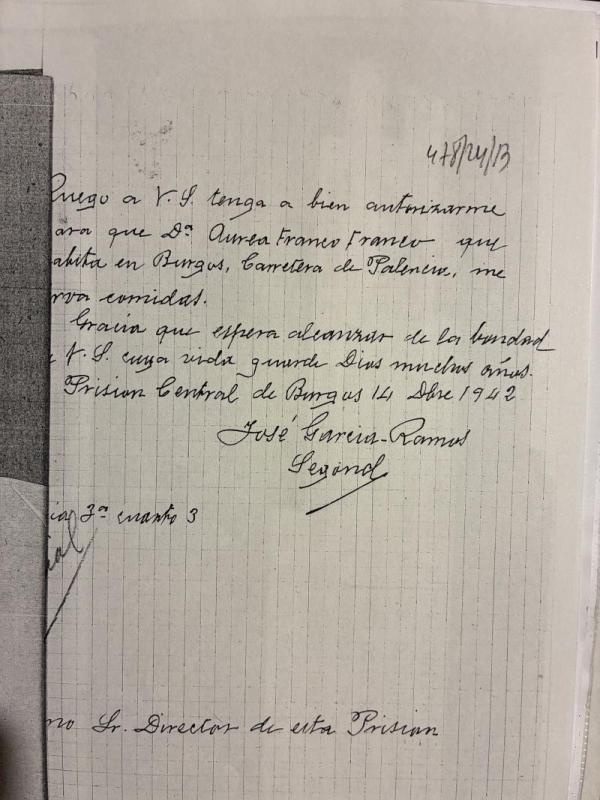 478/24/13
Ruego a V. S. tenga a bien autorizarme
ara que Dª Aurea Franco Franco que
abita en Burgos, Carretera de Palencia, me
rva comidas.
Gracia que espera alcanzar de la bondad
e V. S. cuya vida guarde Dios muchos años.
Prision Central de Burgos 14 Dbre 1942
José Garcia-Ramos
Segond
ia 3ª cuarto 3
ial
mo Sr. Director de esta Prision